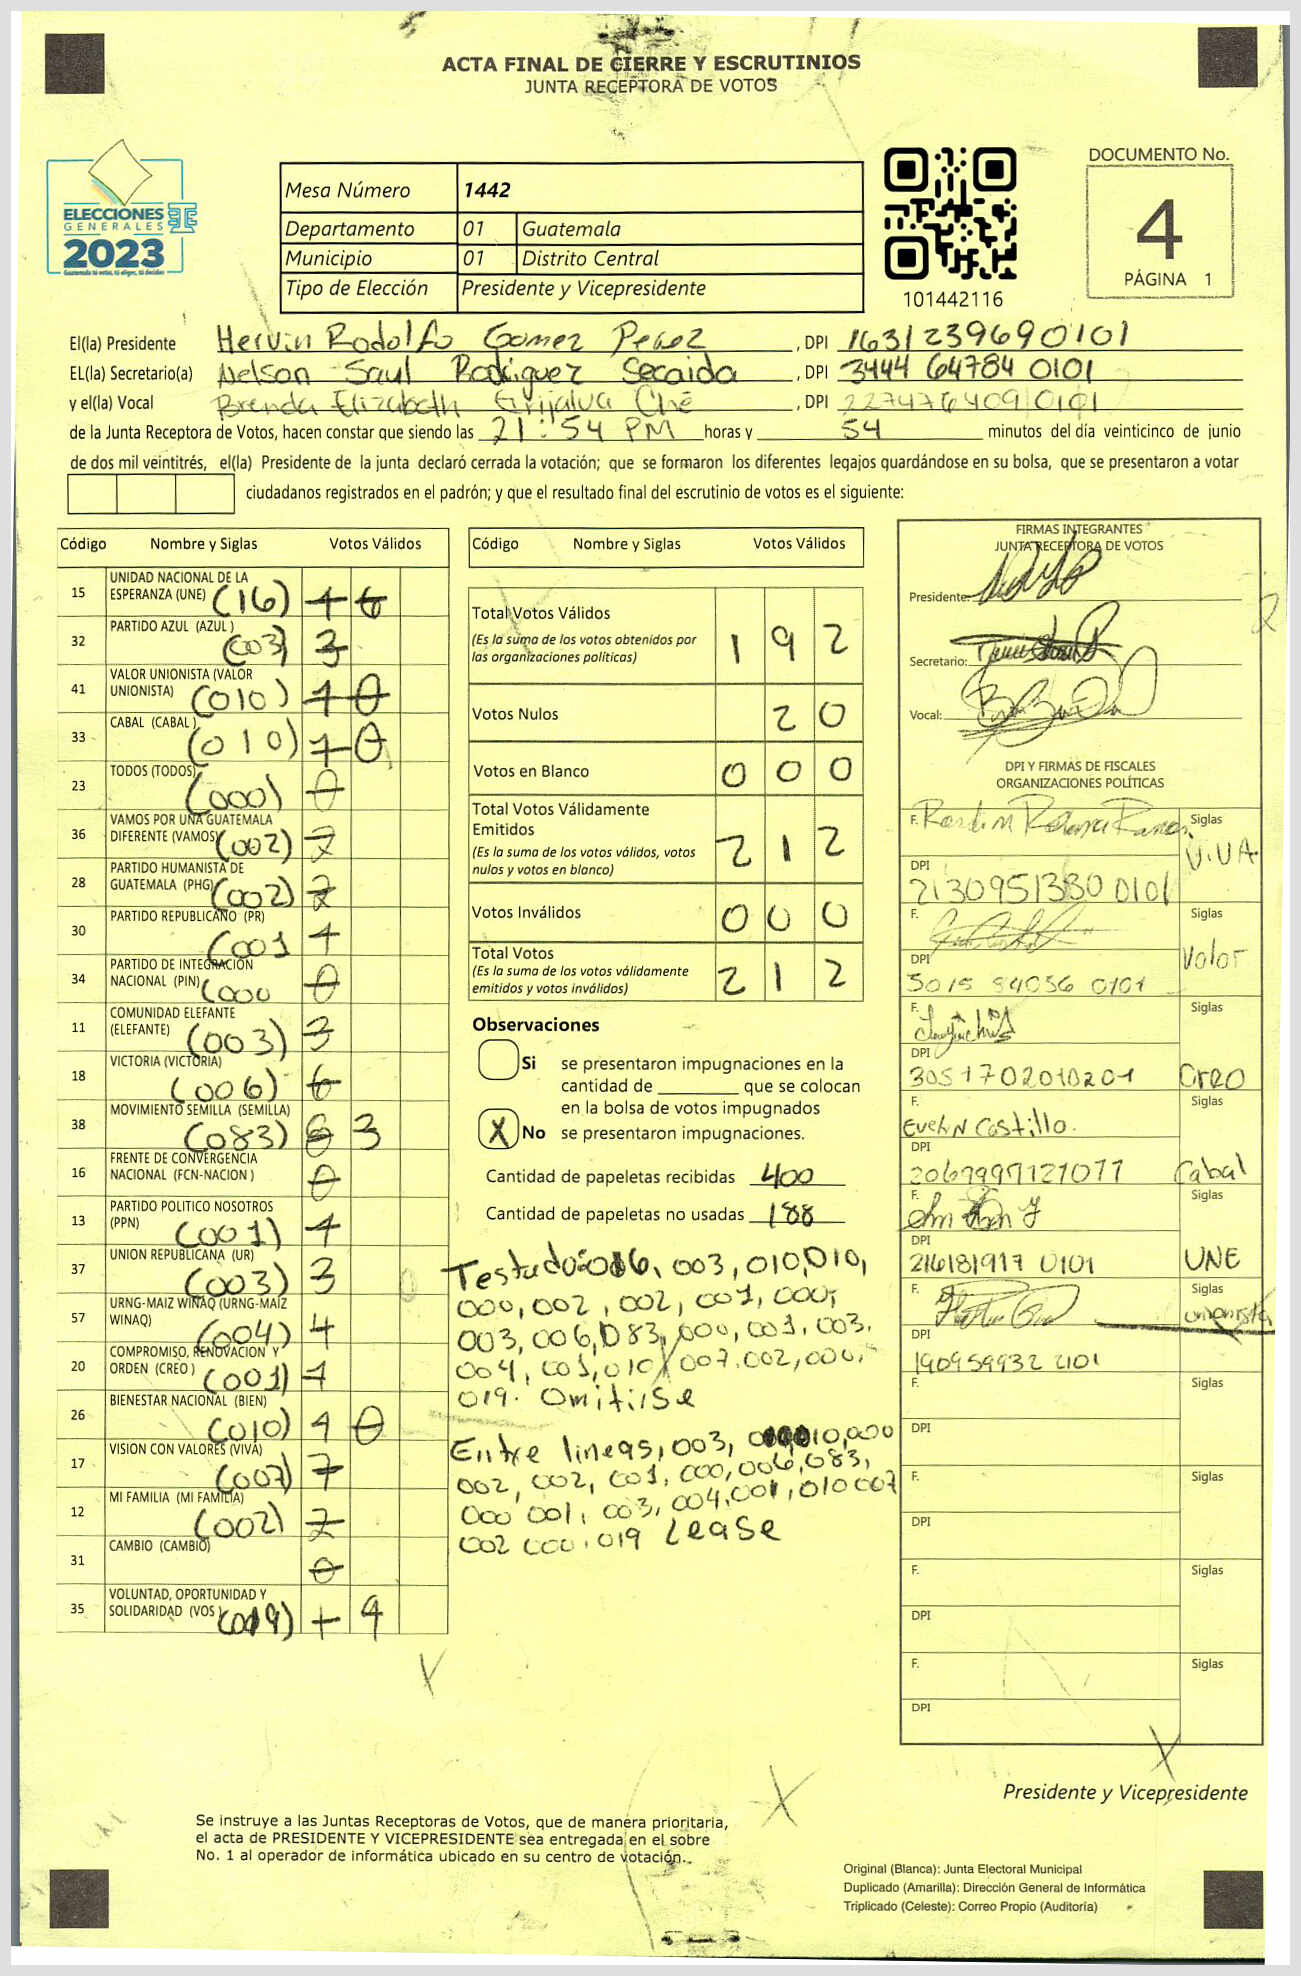 ACTA FINAL DE CIERRE Y ESCRUTINIOS
JUNTA RECEPTORA DE VOTOS
ELECCIONES
GENERALES
2023
Guatemala tú votas, tú eliges, tú decides
Mesa Número 1442
Departamento 01 Guatemala
Municipio 01 Distrito Central
Tipo de Elección Presidente y Vicepresidente
101442116
DOCUMENTO No.
4
PÁGINA 1
El(la) Presidente Hervin Rodolfo Gomez Perez, DPI 1631239690101
EL(la) Secretario(a) Nelson Saul Rodriguez Secaida, DPI 3444 64784 0101
y el(la) Vocal Brenda Elizabeth Grijalva Ché, DPI 2274764090101
de la Junta Receptora de Votos, hacen constar que siendo las 21:54 PM horas y 54 minutos del día veinticinco de junio
de dos mil veintitrés, el(la) Presidente de la junta declaró cerrada la votación; que se formaron los diferentes legajos guardándose en su bolsa, que se presentaron a votar
ciudadanos registrados en el padrón; y que el resultado final del escrutinio de votos es el siguiente:
Código Nombre y Siglas Votos Válidos
15 UNIDAD NACIONAL DE LA
ESPERANZA (UNE) (16) 1 6
32 PARTIDO AZUL (AZUL) (003) 3
41 VALOR UNIONISTA (VALOR
UNIONISTA) (010) 1 0
33 CABAL (CABAL) (010) 1 0
23 TODOS (TODOS) (000) 0
36 VAMOS POR UNA GUATEMALA
DIFERENTE (VAMOS) (002) 2
28 PARTIDO HUMANISTA DE
GUATEMALA (PHG) (002) 2
30 PARTIDO REPUBLICANO (PR) (001 1
34 PARTIDO DE INTEGRACIÓN
NACIONAL (PIN) (000 0
11 COMUNIDAD ELEFANTE
(ELEFANTE) (003) 3
18 VICTORIA (VICTORIA) (006) 6
38 MOVIMIENTO SEMILLA (SEMILLA) (083) 8 3
16 FRENTE DE CONVERGENCIA
NACIONAL (FCN-NACION) 0
13 PARTIDO POLITICO NOSOTROS
(PPN) (001) 1
37 UNION REPUBLICANA (UR) (003) 3
57 URNG-MAIZ WINAQ (URNG-MAÍZ
WINAQ) (004) 4
20 COMPROMISO, RENOVACIÓN Y
ORDEN (CREO) (001) 1
26 BIENESTAR NACIONAL (BIEN) (010) 1 0
17 VISION CON VALORES (VIVA) (007) 7
12 MI FAMILIA (MI FAMILIA) (002) 2
31 CAMBIO (CAMBIO) 0
35 VOLUNTAD, OPORTUNIDAD Y
SOLIDARIDAD (VOS) (019) 1 9
Código Nombre y Siglas Votos Válidos
Total Votos Válidos 1 9 2
(Es la suma de los votos obtenidos por
las organizaciones políticas)
Votos Nulos 2 0
Votos en Blanco 0 0 0
Total Votos Válidamente
Emitidos 2 1 2
(Es la suma de los votos válidos, votos
nulos y votos en blanco)
Votos Inválidos 0 0 0
Total Votos 2 1 2
(Es la suma de los votos válidamente
emitidos y votos inválidos)
Observaciones
Si se presentaron impugnaciones en la
cantidad de ________ que se colocan
en la bolsa de votos impugnados
X No se presentaron impugnaciones.
Cantidad de papeletas recibidas 400
Cantidad de papeletas no usadas 188
Testado: 016, 003, 010, 010,
000, 002, 002, 001, 000,
003, 006, 083, 000, 001, 003.
004, 001, 010 007, 002, 000,
019. Omitirse
Entre lineas, 003, 010, 000
002, 002, 001, 000, 006, 083,
000 001, 003, 004, 001, 010 007
002 000, 019 Lease
FIRMAS INTEGRANTES
JUNTA RECEPTORA DE VOTOS
Presidente:
Secretario:
Vocal:
DPI Y FIRMAS DE FISCALES
ORGANIZACIONES POLÍTICAS
F. Siglas
V.VA
DPI
2130951330 0101
F. Siglas
Valor
DPI
3015 84056 0101
F. Siglas
DPI
3051702010201 Creo
F. Siglas
Evelin Castillo.
DPI
2069997121077 Cabal
F. Siglas
DPI
216181917 0101 UNE
F. Siglas
unionista
DPI
190959932 2101
F. Siglas
DPI
F. Siglas
DPI
F. Siglas
DPI
F. Siglas
DPI
Presidente y Vicepresidente
Se instruye a las Juntas Receptoras de Votos, que de manera prioritaria,
el acta de PRESIDENTE Y VICEPRESIDENTE sea entregada en el sobre
No. 1 al operador de informática ubicado en su centro de votación.
Original (Blanca): Junta Electoral Municipal
Duplicado (Amarilla): Dirección General de Informática
Triplicado (Celeste): Correo Propio (Auditoría)